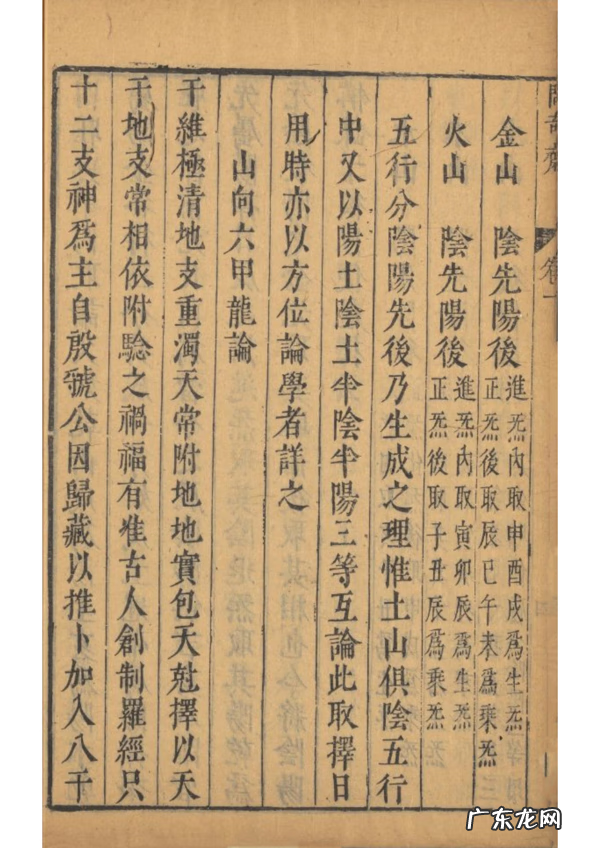 卷一
金山 陰先陽後 進炁內取申酉戌爲生炁
正炁後取辰巳午未爲乘炁三
火山 陰先陽後 進炁內取寅卯辰爲生炁
正炁後取子丑辰爲乘炁
五行分陰陽先後乃生成之理惟土山俱陰五行
中又以陽土陰土半陰半陽三等互論此取擇日
用時亦以方位論學者詳之
山向六甲龍論
干維極清地支重濁天常附地地實包天尅擇以天
干地支常相依附騐之禍福有准古人創制羅經只
十二支神爲主自殷虢公因歸藏以推卜加入八干
广东龙网